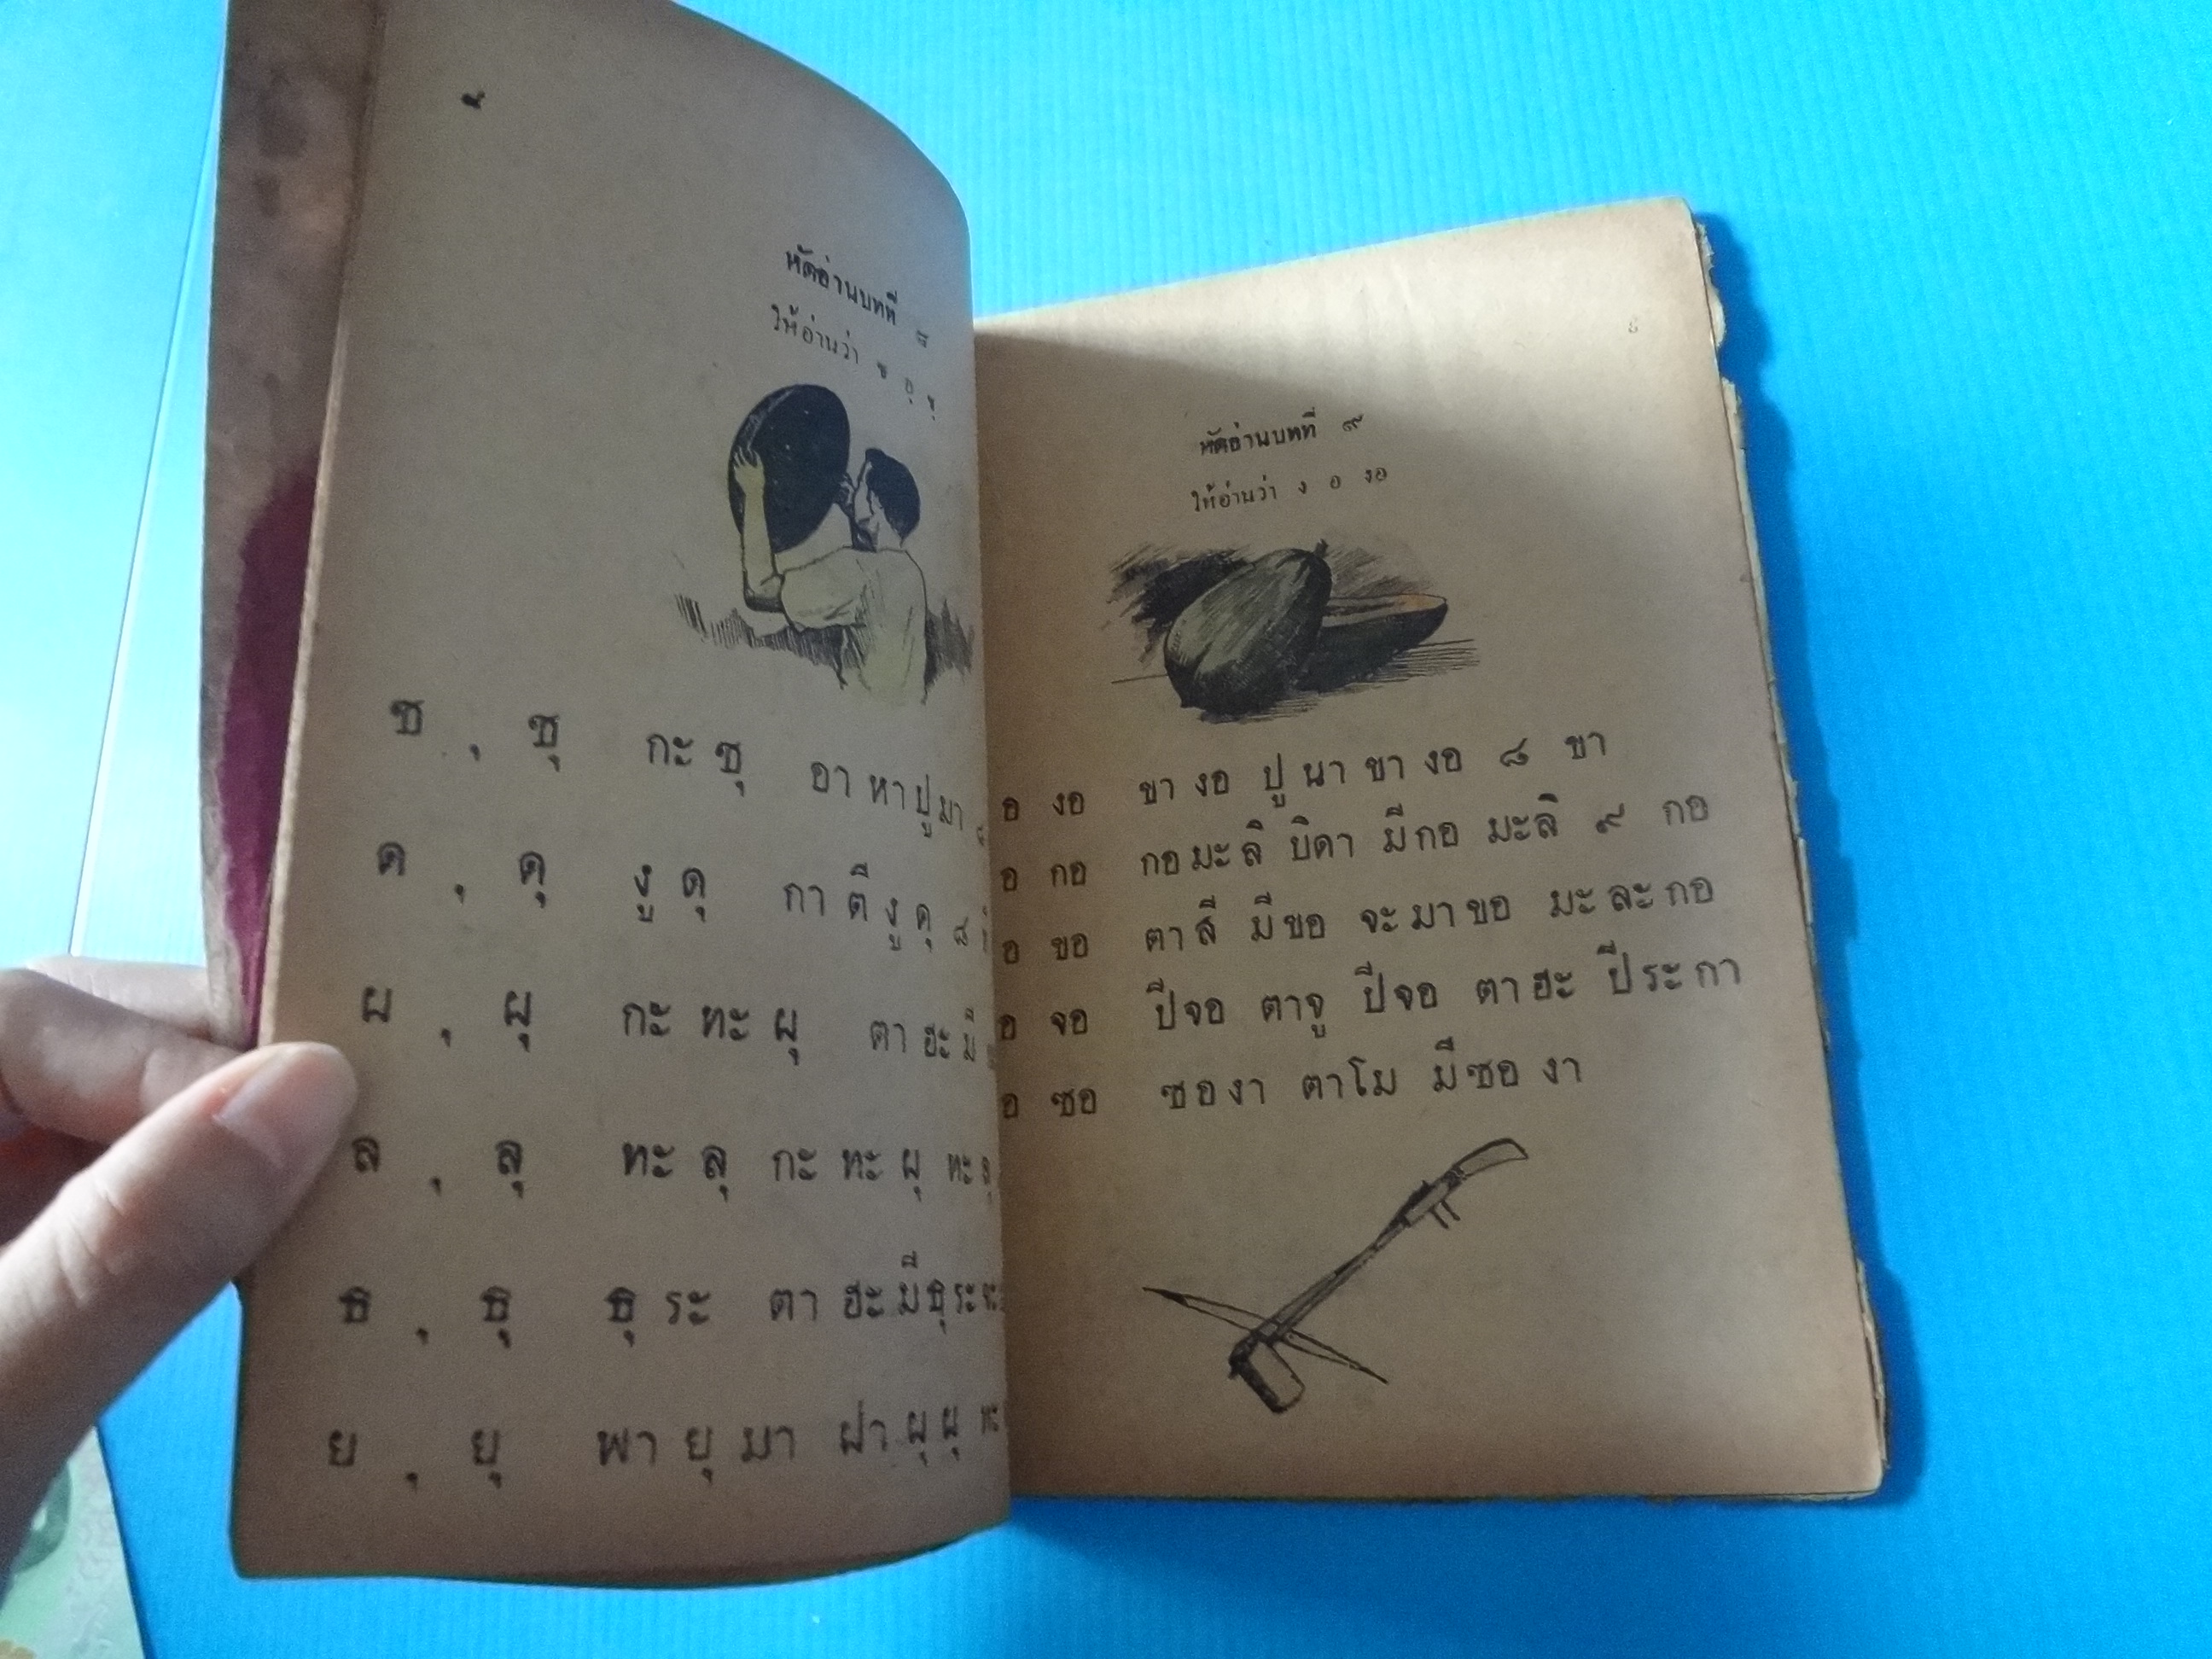 หัดอ่านบทที่ ๘
ให้อ่านว่า ช อุ ชุ
ช ุ ชุ กะ ชุ อา หา ปู มา
ด ุ ดุ งู ดุ กา ตี งู ดุ ๘
ผ ุ ผุ กะ ทะ ผุ ตา ฮะ มี
ล ุ ลุ ทะ ลุ กะ ทะ ผุ ทะ ลุ
ธ ุ ธุ ธุ ระ ตา ฮะ มี ธุ ระ
ย ุ ยุ พา ยุ มา ฝา ผุ ผุ
หัดอ่านบทที่ ๙
ให้อ่านว่า ง อ งอ
อ งอ ขา งอ ปู นา ขา งอ ๘ ขา
อ กอ กอ มะ ลิ บิดา มี กอ มะลิ ๙ กอ
อ ขอ ตา สี มี ขอ จะ มา ขอ มะ ละ กอ
อ จอ ปี จอ ตา จู ปี จอ ตา ฮะ ปี ระ กา
อ ซอ ซอ งา ตา โม มี ซอ งา